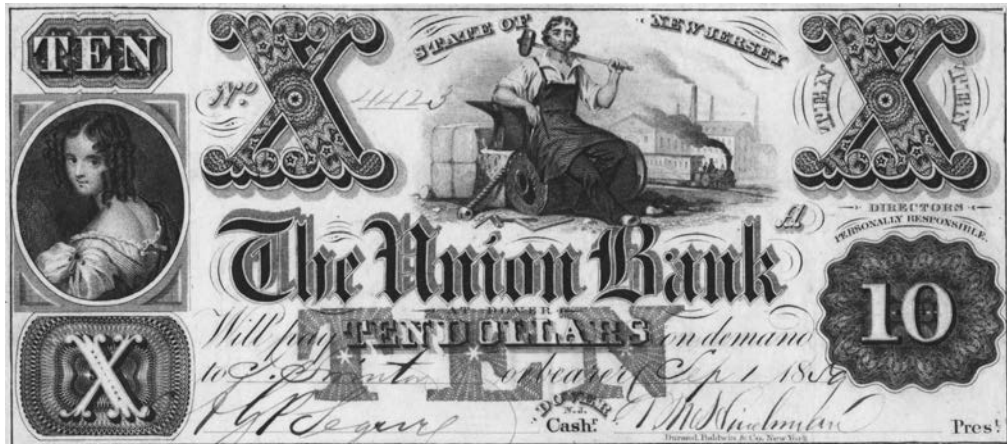 TEN
X
STATE OF NEW JERSEY
X
TEN TEN
No 4423
A
DIRECTORS
PERSONALLY RESPONSIBLE.
The Union Bank
AT DOVER
10
TEN
Will pay TEN DOLLARS on demand
to or bearer Sep 1 18
X
DOVER
N.J.
Cashr. Prest.
Durand, Baldwin & Co. New York